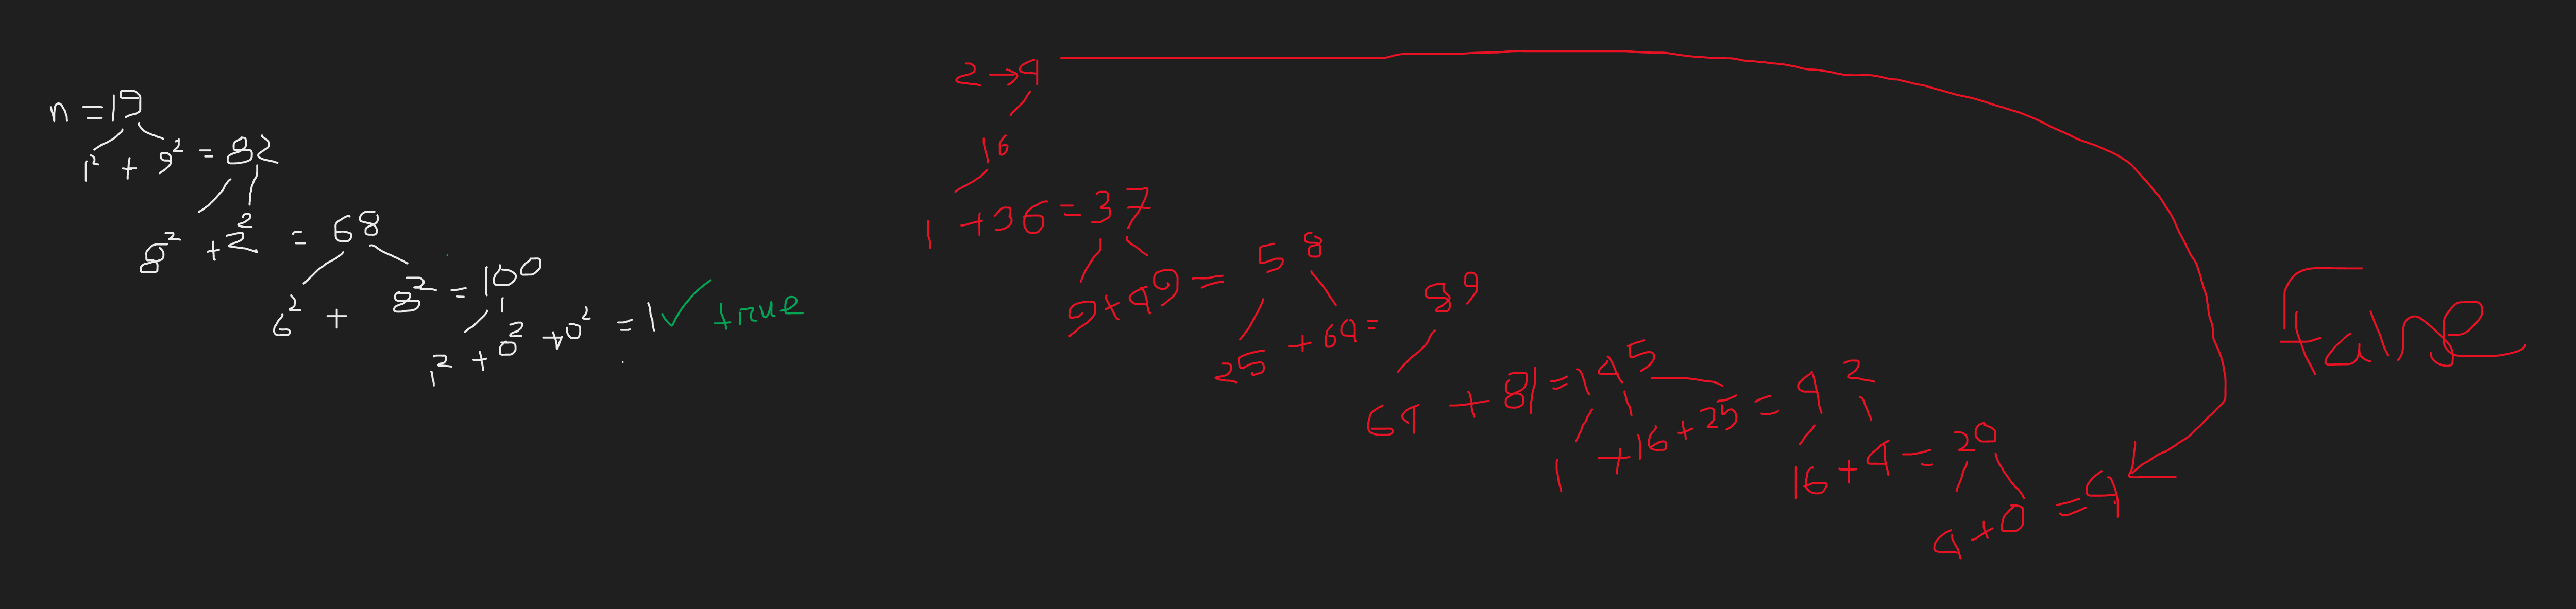 n = 19
1² + 9² = 82
8² + 2² = 68
6² + 8² = 100
1² + 0² + 0² = 1 ✓ true
2 → 4
16
1 + 36 = 37
9 + 49 = 58
25 + 64 = 89
64 + 81 = 145
1 + 16 + 25 = 42
16 + 4 = 20
4 + 0 = 4
false